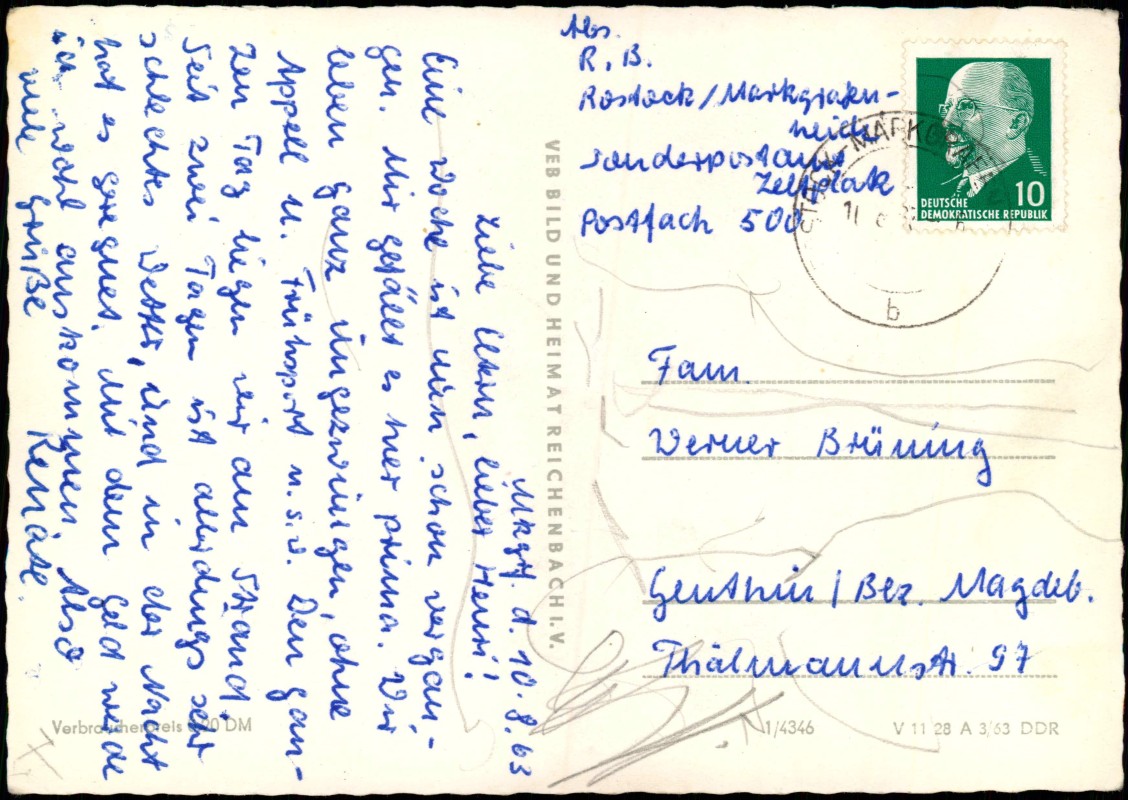 Mkgrf. d. 10.8.63
Liebe Eltern, lieber Henri!
Eine Woche ist nun schon vergan-
gen. Mir gefällt es hier prima. Wir
leben ganz ungezwungen, ohne
Appell u. Frühsport u.s.w. Den gan-
zen Tag liegen wir am Strand.
Seit zwei Tagen ist allerdings sehr
schlechtes Wetter, und in der Nacht
hat es geregnet. Mit dem Geld werde
ich wohl auskommen. Also
viele Grüße Renate.
Abs.
R. B.
Rostock/Markgrafen-
heide
Sonderpostamt
Zeltplatz
Postfach 500
DEUTSCHE
DEMOKRATISCHE REPUBLIK
10
b
VEB BILD UND HEIMAT REICHENBACH I. V.
Fam.
Werner Brüning
Genthin / Bez. Magdeb.
Thälmannstr. 97
Verbraucherpreis 0,20 DM
1/4346
V 11 28 A 3/63 DDR